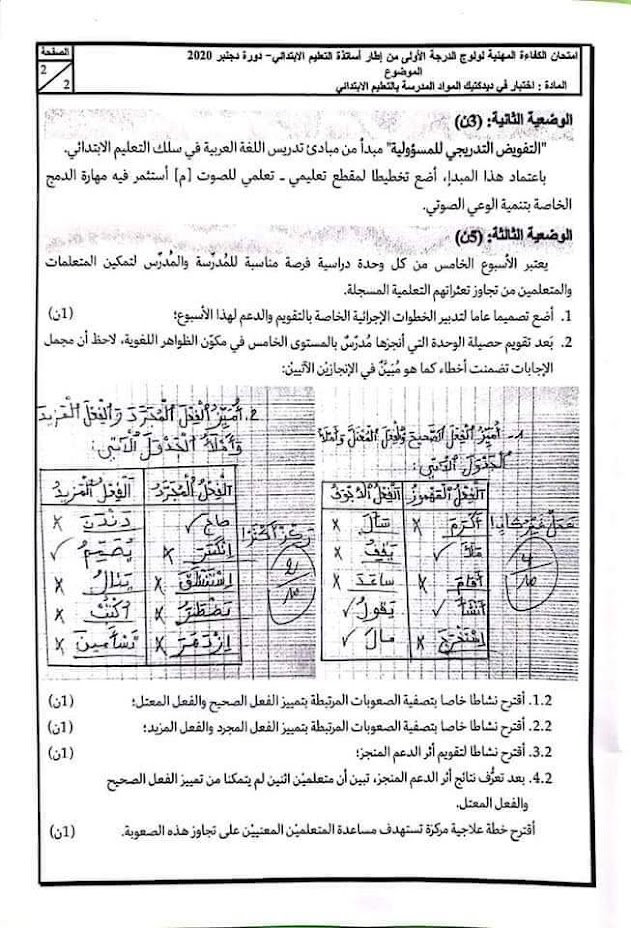 امتحان الكفاءة المهنية لولوج الدرجة الأولى من إطار أساتذة التعليم الابتدائي- دورة دجنبر 2020
الموضوع
المادة : اختبار في ديدكتيك المواد المدرسة بالتعليم الابتدائي
الصفحة
2
2
الوضعية الثانية: (3ن)
"التفويض التدريجي للمسؤولية" مبدأ من مبادئ تدريس اللغة العربية في سلك التعليم الابتدائي.
باعتماد هذا المبدإ، أضع تخطيطا لمقطع تعليمي ـ تعلمي للصوت [م] أستثمر فيه مهارة الدمج
الخاصة بتنمية الوعي الصوتي.
الوضعية الثالثة: (5ن)
يعتبر الأسبوع الخامس من كل وحدة دراسية فرصة مناسبة للمُدرّسة والمُدرّس لتمكين المتعلمات
والمتعلمين من تجاوز تعثراتهم التعلمية المسجلة.
1. أضع تصميما عاما لتدبير الخطوات الإجرائية الخاصة بالتقويم والدعم لهذا الأسبوع؛ (1ن)
2. بَعد تقويم حصيلة الوحدة التي أنجزها مُدرّسٌ بالمستوى الخامس في مكوّن الظواهر اللغوية، لاحظ أن مجمل
الإجابات تضمنت أخطاء كما هو مُبَيَّنٌ في الإنجازيْن الآتييْن:
1- أميز الفعل الصحيح والفعل المعتل وأملأ
الجدول الآتي:
الفعل المهموز الفعل الأجوف
أكرم × سأل ×
ملأ ✓ يقف ×
أقام × ساعد ×
أنشأ ✓ يقول ✓
استخرج × مال ✓
عمل غير كاف
4
10
2. أميز الفعل المجرد والفعل المزيد
وأملأ الجدول الآتي:
الفعل المجرد الفعل المزيد
✓ دندن ×
انكسر ×
×
يضطر ×
×
2
10
1.2. أقترح نشاطا خاصا بتصفية الصعوبات المرتبطة بتمييز الفعل الصحيح والفعل المعتل؛ (1ن)
2.2. أقترح نشاطا خاصا بتصفية الصعوبات المرتبطة بتمييز الفعل المجرد والفعل المزيد؛ (1ن)
3.2. أقترح نشاطا لتقويم أثر الدعم المنجز؛ (1ن)
4.2. بعد تعرُّف نتائج أثر الدعم المنجز، تبين أن متعلميْن اثنين لم يتمكنا من تمييز الفعل الصحيح
والفعل المعتل.
أقترح خطة علاجية مركزة تستهدف مساعدة المتعلميْن المعنييْن على تجاوز هذه الصعوبة. (1ن)